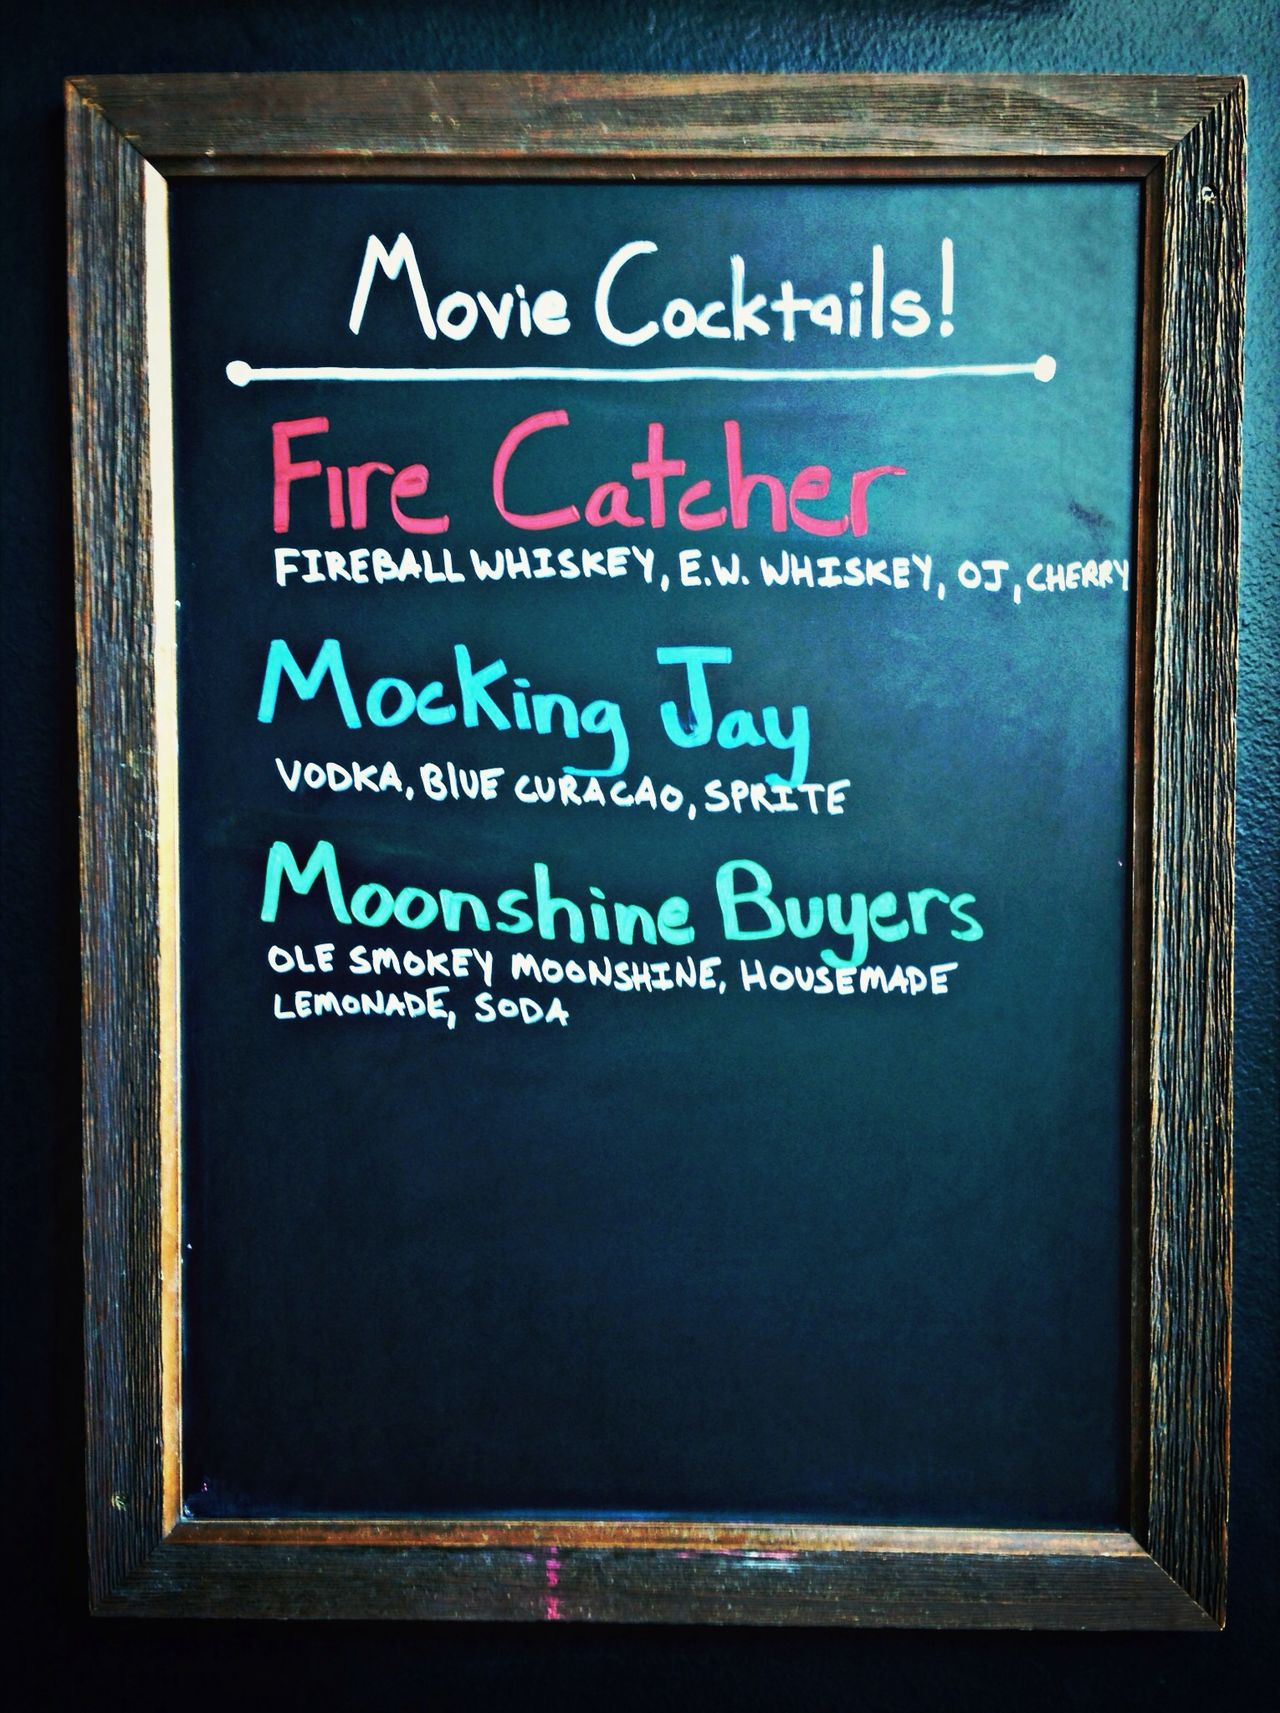 Movie Cocktails!
Fire Catcher
FIREBALL WHISKEY, E.W. WHISKEY, OJ, CHERRY
Mocking Jay
VODKA, BlUE CURACAO, SPRITE
Moonshine Buyers
OLE SMOKEY MOONSHINE, HOUSEMADE
LEMONADE, SODA